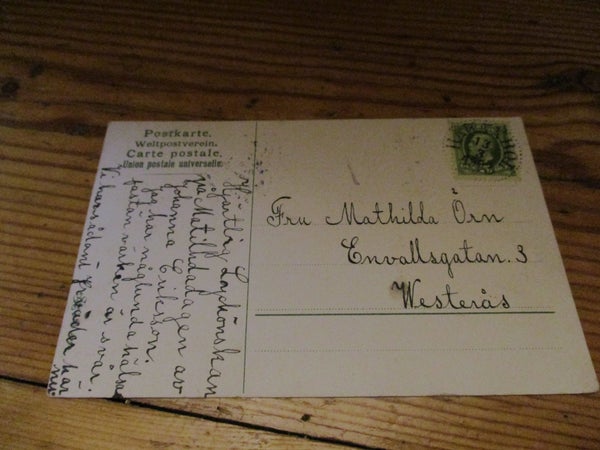 Postkarte.
Weltpostverein.
Carte postale.
Union postale universelle.
Hjärtlig Lyckönskan
på Matilldadagen av
Johanna Eriksson.
jag har någlunda hälsa
fastän värken är svår.
Vi har sådant här
nu
Fru Mathilda Örn
Envallsgatan. 3
Westerås